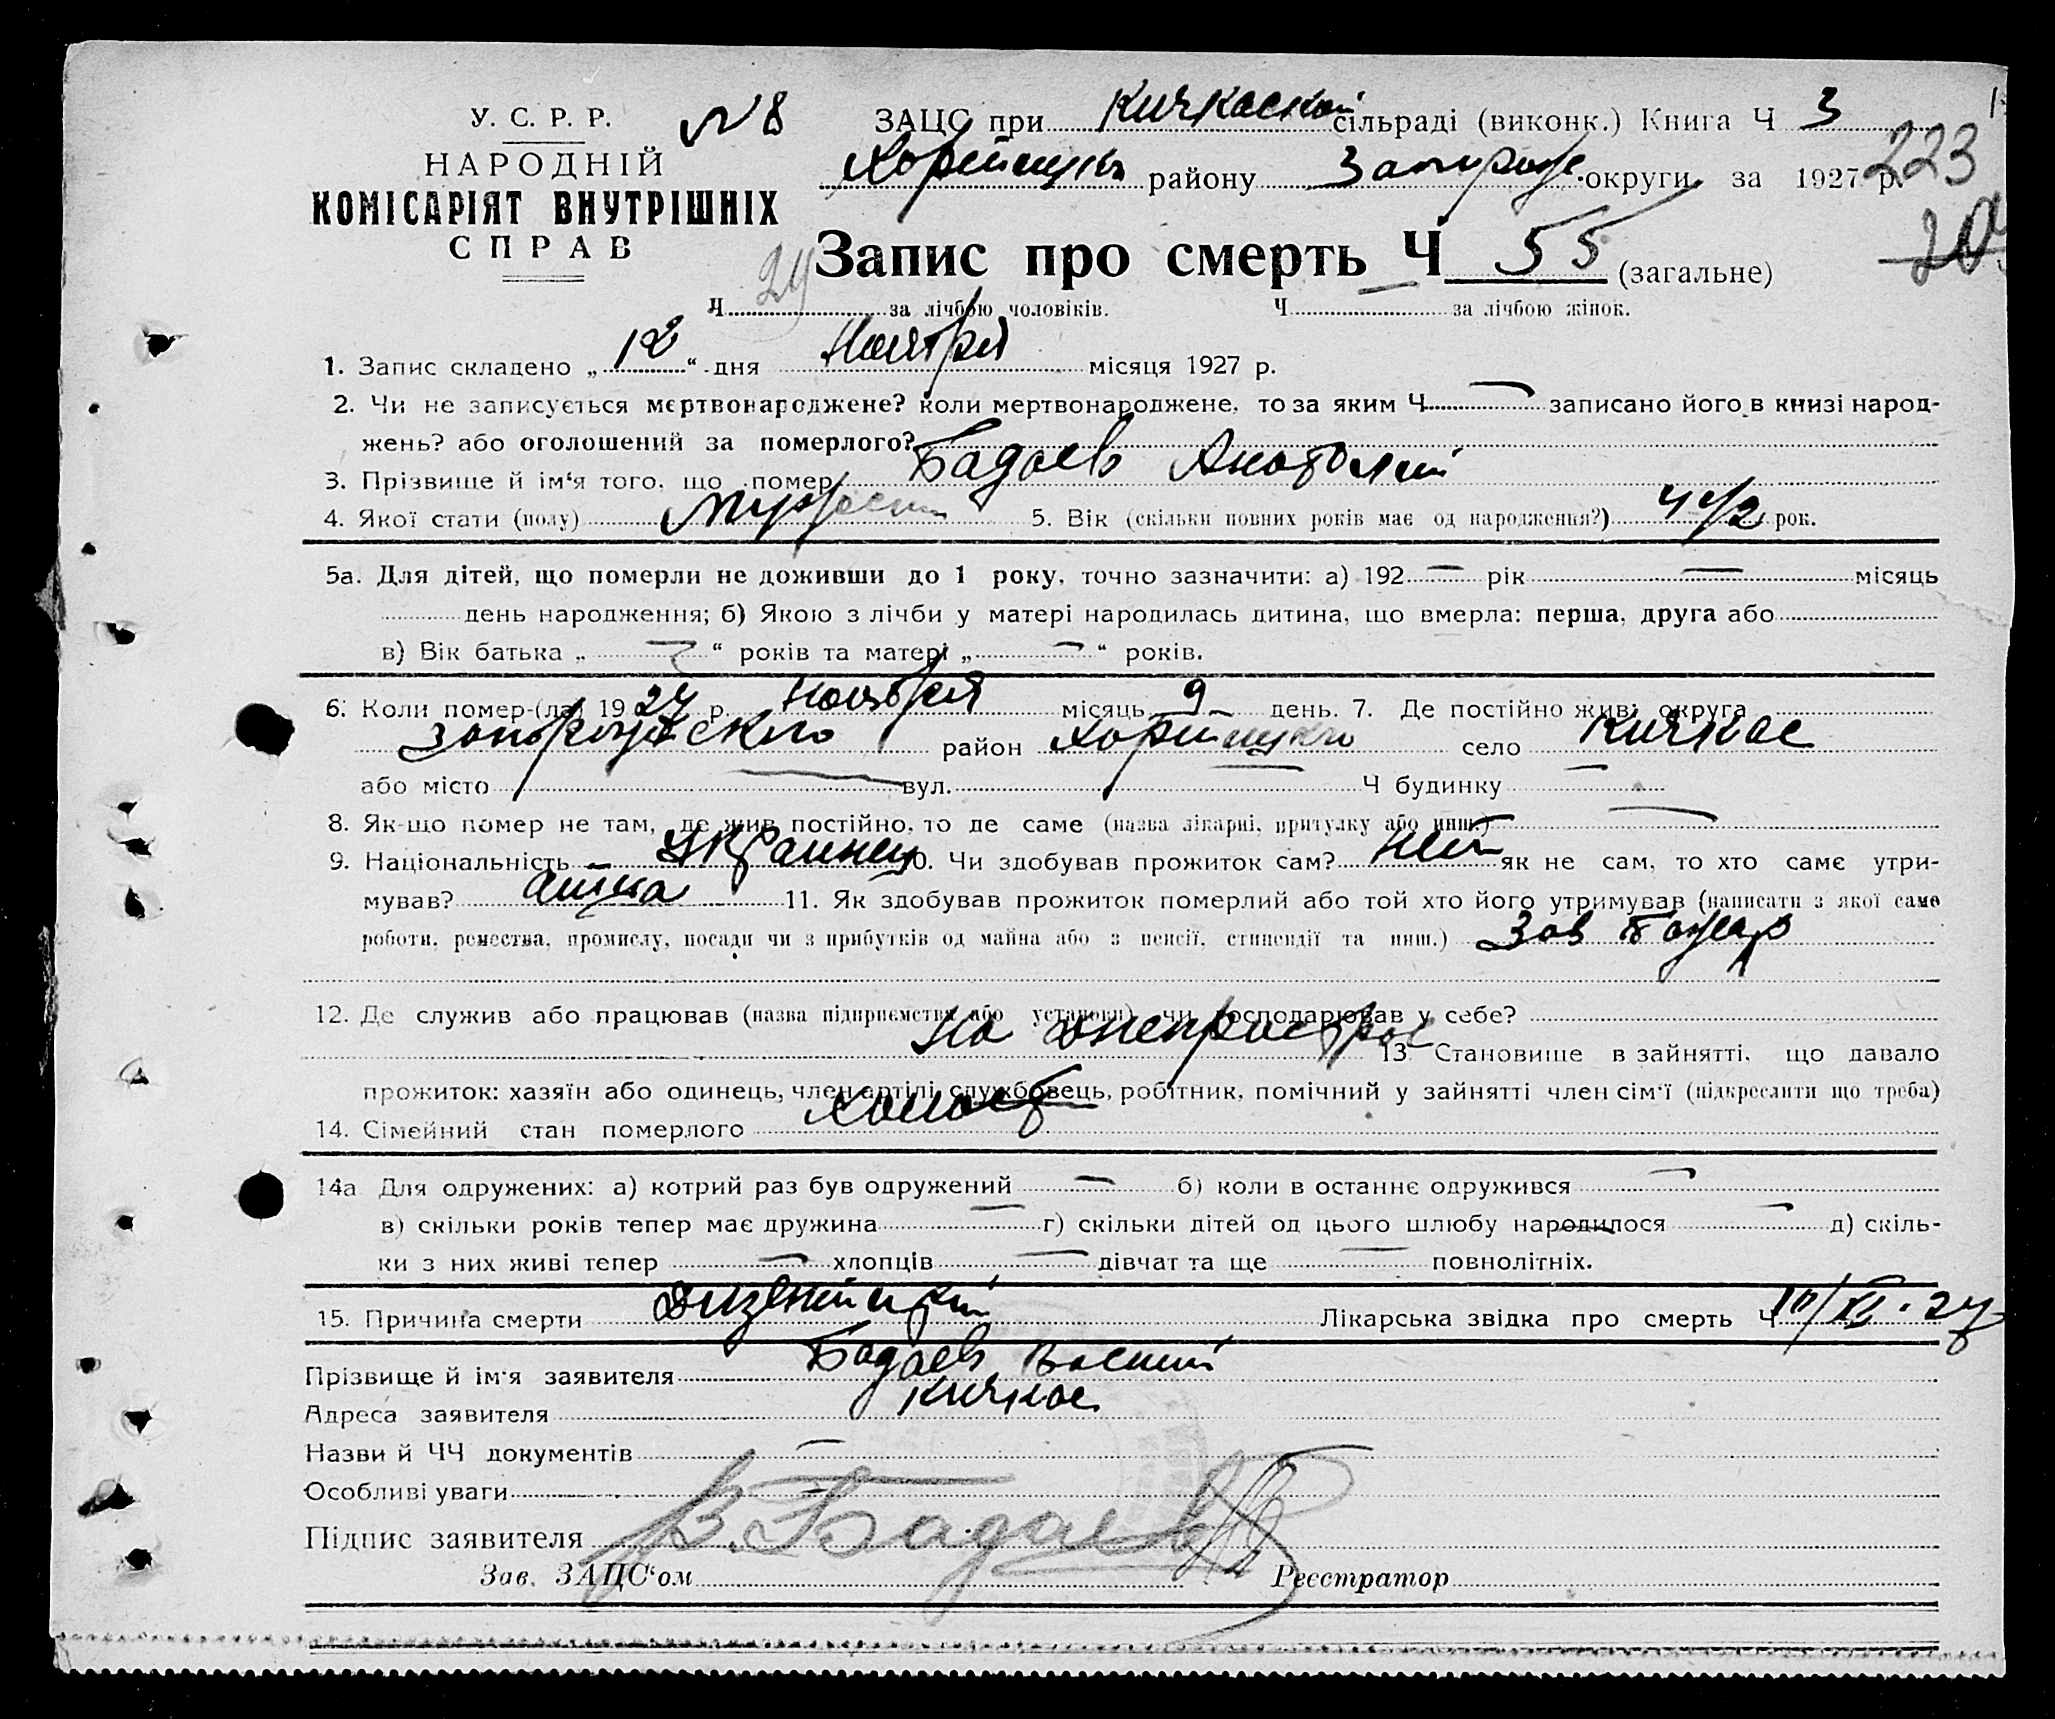 У. С. Р. Р.
НАРОДНІЙ
КОМІСАРІЯТ ВНУТРІШНІХ
СПРАВ
N 8
ЗАЦС при Кичкаской сільраді (виконк.) Книга Ч 3
району Запорож. округи за 1927 р.
223
Запис про смерть Ч 55 (загальне)
Ч 29 за лічбою чоловіків. Ч за лічбою жінок.
1. Запис складено „ 12 “ дня Ноября місяця 1927 р.
2. Чи не записується мертвонароджене? коли мертвонароджене, то за яким Ч — записано його в книзі народ-
жень? або оголошений за померлого?
3. Прізвище й ім'я того, що помер Бадаев Анатолий
4. Якої стати (полу) Мужеский 5. Вік (скільки повних років має од народження?) 4 1/2 рок.
5а. Для дітей, що померли не доживши до 1 року, точно зазначити: а) 192 — рік — місяць
день народження; б) Якою з лічби у матері народилась дитина, що вмерла: перша, друга або
в) Вік батька „ — “ років та матері „ — “ років.
6. Коли помер-(ла) 1927 р. Ноября місяць 9 день. 7. Де постійно жив: округа
Запорожского район село Кичкас
або місто — вул. — Ч будинку —
8. Як-що помер не там, де жив постійно, то де саме (назва лікарні, притулку або инш.) —
9. Національність Украинец 10. Чи здобував прожиток сам? Нет як не сам, то хто саме утри-
мував? 11. Як здобував прожиток померлий або той хто його утримував (написати з якої саме
роботи, ремества, промислу, посади чи з прибутків од майна або з пенсії, стипендії та инш.) Зав
12. Де служив або працював (назва підприємства або установи) чи господарював у себе?
На Днепрострое 13. Становище в зайнятті, що давало
прожиток: хазяїн або одинець, член артілі, службовець, робітник, помічний у зайнятті член сім'ї (підкреслити що треба)
14. Сімейний стан померлого Холост
14а Для одружених: а) котрий раз був одружений — б) коли в останнє одружився —
в) скільки років тепер має дружина — г) скільки дітей од цього шлюбу народилося — д) скіль-
ки з них живі тепер — хлопців — дівчат та ще — повнолітніх.
15. Причина смерти Лікарська звідка про смерть Ч 10/XI-27
Прізвище й ім'я заявителя Бадаев Василий
Адреса заявителя Кичкас
Назви й ЧЧ документів —
Особливі уваги —
Підпис заявителя В. Бадаев
Зав. ЗАЦС'ом Реєстратор